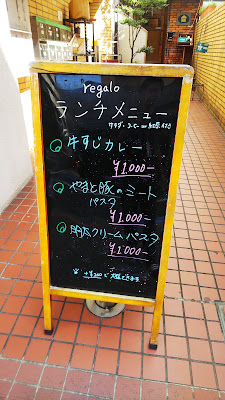 regalo
ランチメニュー
サラダ・コーヒー or 紅茶 付き
牛すじカレー
¥1000-
やまと豚のミート
パスタ
¥1000-
明太クリームパスタ
¥1000-
+¥200で大盛できます